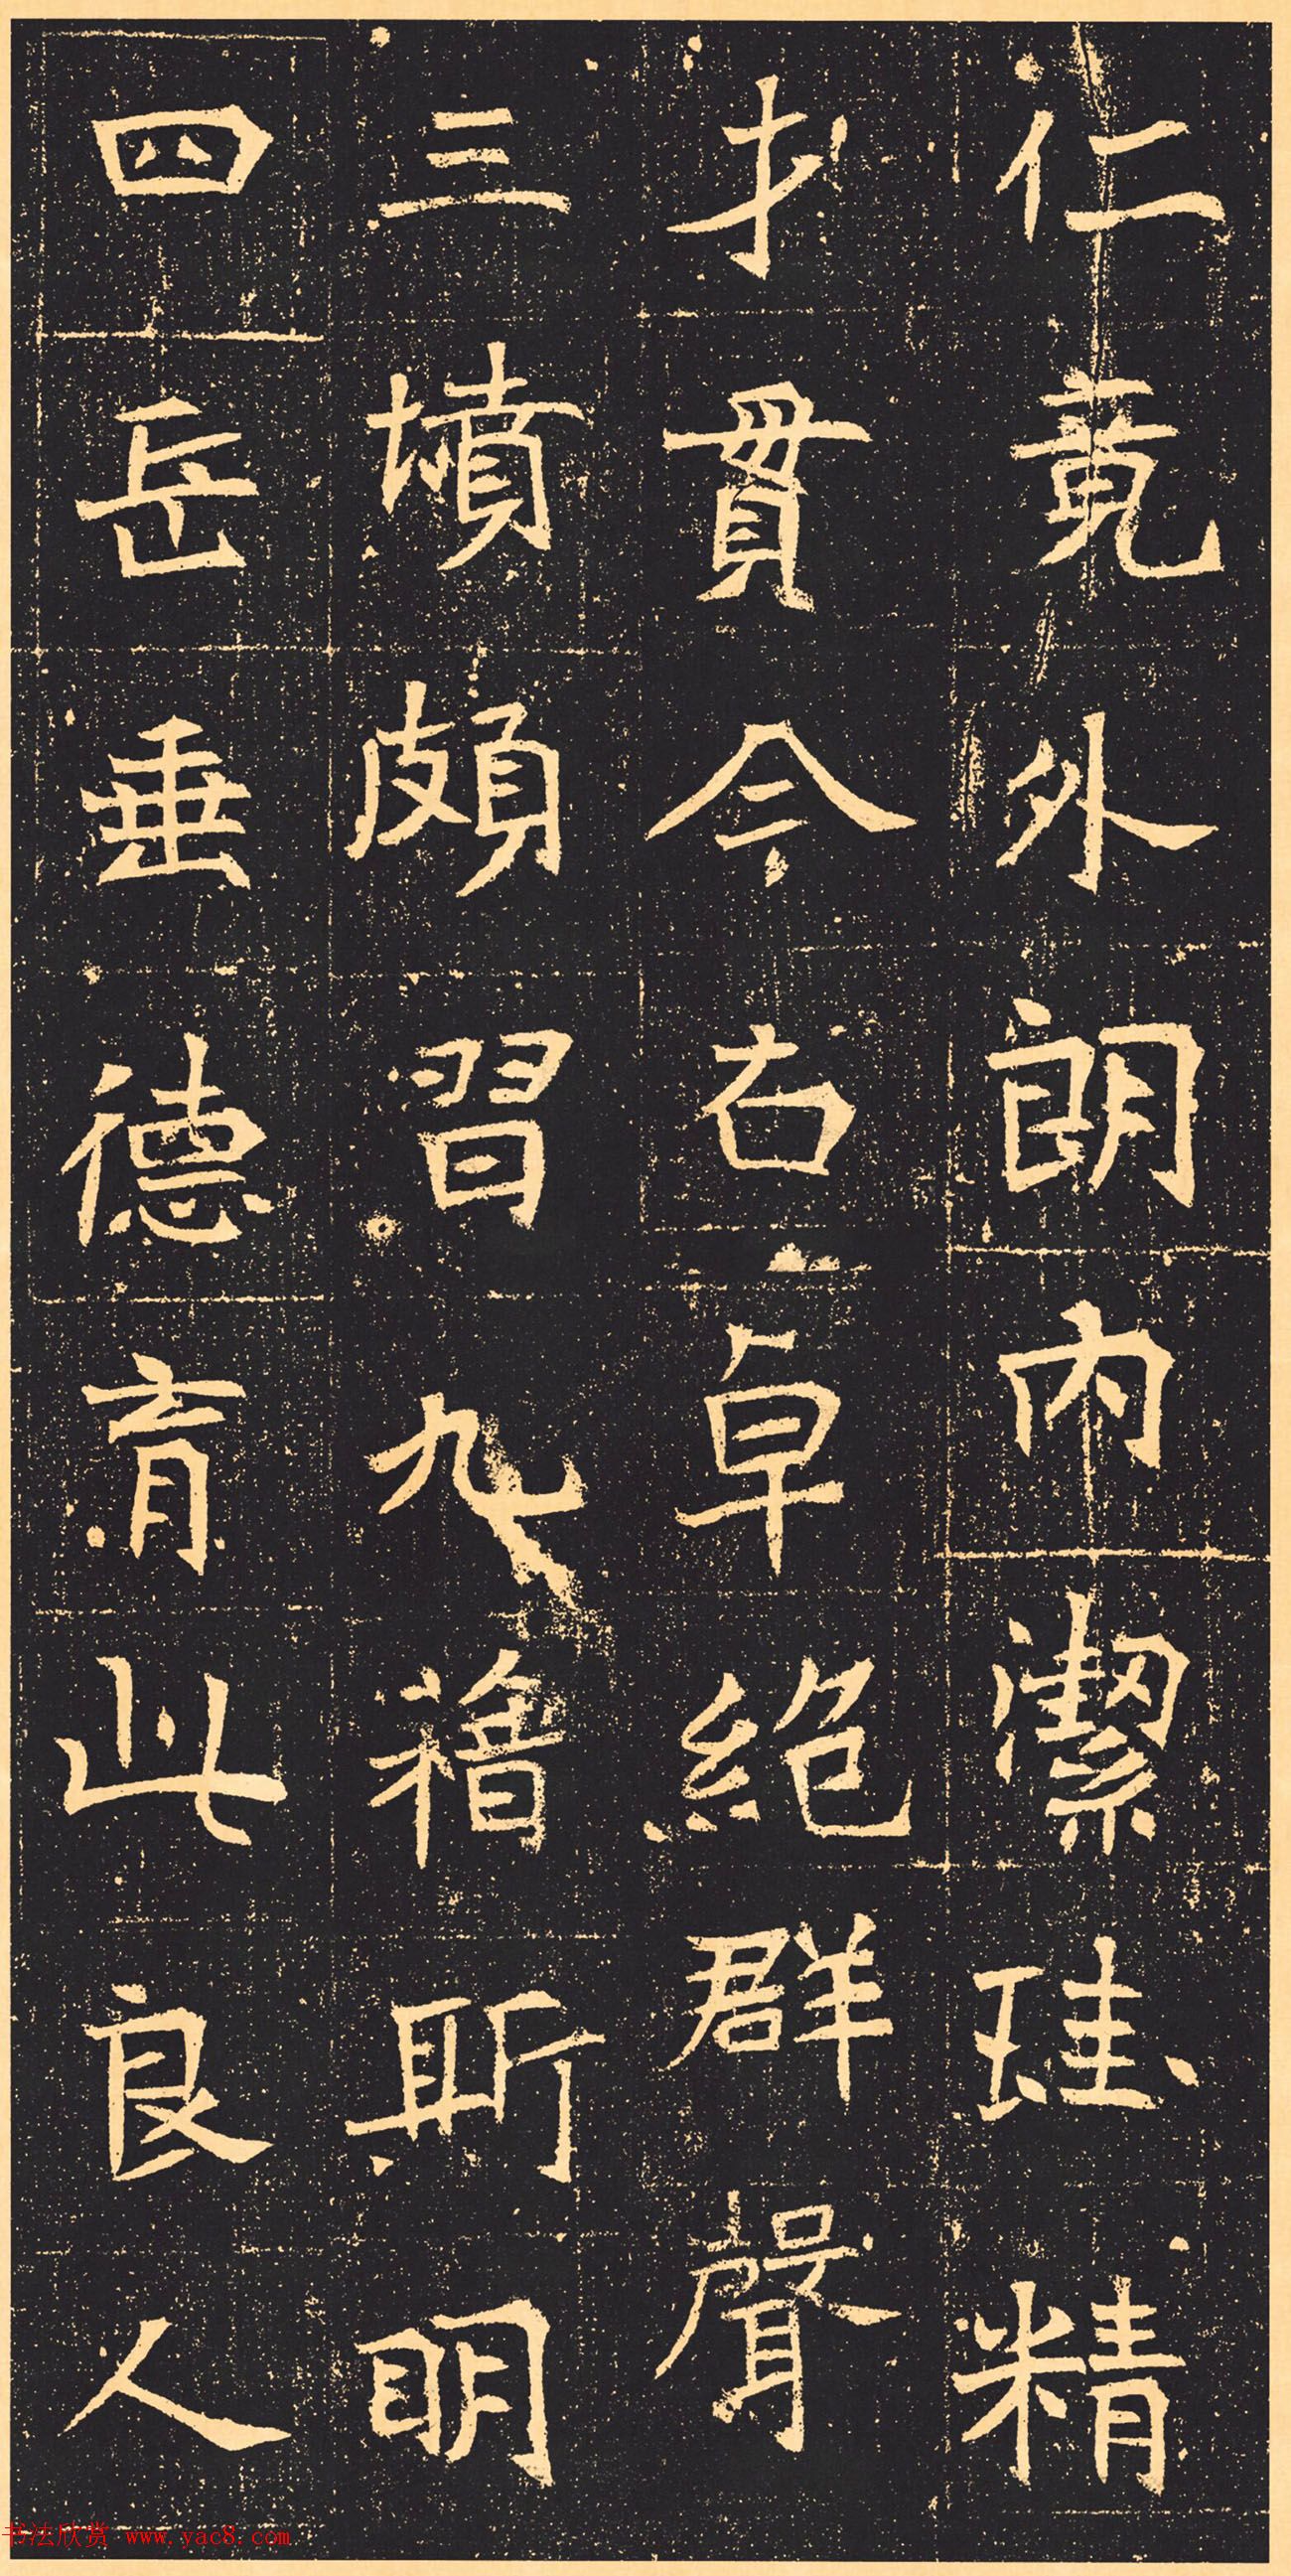 仁竟外朗內潔珪精
才貫今右卓絶群聲
三墳頗習九籍斯明
四岳垂德育此良人
书法欣赏 www.yac8.com